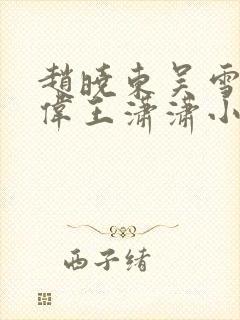 趙曉東吳雪
偉王瀟瀟小
西子绪